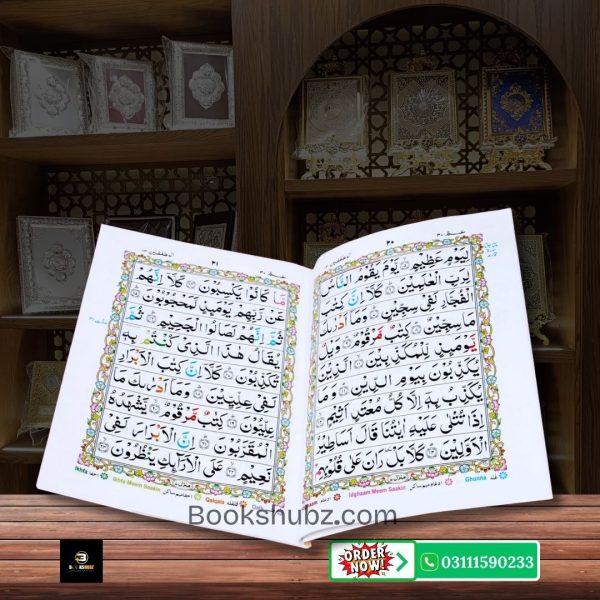 ٢٠
لِيَوْمٍ عَظِيْمٍ يَّوْمَ يَقُوْمُ النَّاسُ
لِرَبِّ الْعٰلَمِيْنَ كَلَّاۤ اِنَّ كِتٰبَ
الْفُجَّارِ لَفِيْ سِجِّيْنٍ وَمَاۤ اَدْرٰىكَ
مَا سِجِّيْنٌ كِتٰبٌ مَّرْقُوْمٌ وَيْلٌ
يَّوْمَئِذٍ لِّلْمُكَذِّبِيْنَ الَّذِيْنَ
يُكَذِّبُوْنَ بِيَوْمِ الدِّيْنِ وَمَا
يُكَذِّبُ بِهٖۤ اِلَّا كُلُّ مُعْتَدٍ اَثِيْمٍ
اِذَا تُتْلٰى عَلَيْهِ اٰيٰتُنَا قَالَ اَسَاطِيْرُ
الْاَوَّلِيْنَ كَلَّا بَلْ رَانَ عَلٰى قُلُوْبِهِمْ
Idghaam Meem Saakin ادغام میم ساکن Ghunna غنہ
٢١
مَّا كَانُوْا يَكْسِبُوْنَ كَلَّاۤ اِنَّهُمْ
عَنْ رَّبِّهِمْ يَوْمَئِذٍ لَّمَحْجُوْبُوْنَ
ثُمَّ اِنَّهُمْ لَصَالُوا الْجَحِيْمِ ثُمَّ
يُقَالُ هٰذَا الَّذِيْ كُنْتُمْ بِهٖ
تُكَذِّبُوْنَ كَلَّاۤ اِنَّ كِتٰبَ الْاَبْرَارِ
لَفِيْ عِلِّيِّيْنَ وَمَاۤ اَدْرٰىكَ مَا
عِلِّيُّوْنَ كِتٰبٌ مَّرْقُوْمٌ يَّشْهَدُهُ
الْمُقَرَّبُوْنَ اِنَّ الْاَبْرَارَ لَفِيْ
نَعِيْمٍ عَلَى الْاَرَآئِكِ يَنْظُرُوْنَ
Ikhfa اخفا Ikhfa Meem Saakin اخفا میم ساکن Qalqala قلقلہ
Bookshubz.com
ORDER NOW!
03111590233